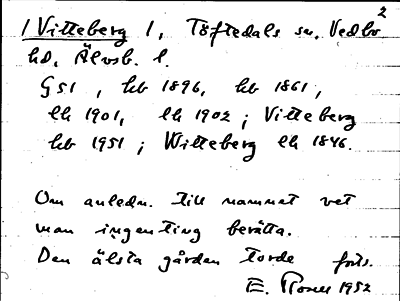 2
/ Vitteberg /, Töftedals sn, Vedbo
hd, Älvsb. l.
G 51, hb 1896, hb 1861,
lh 1901, lh 1902; Vitteberg
hb 1951; Witteberg lh 1846.
Om anledn. till namnet vet
man ingenting berätta.
Den älsta gården torde forts.
E. 1952